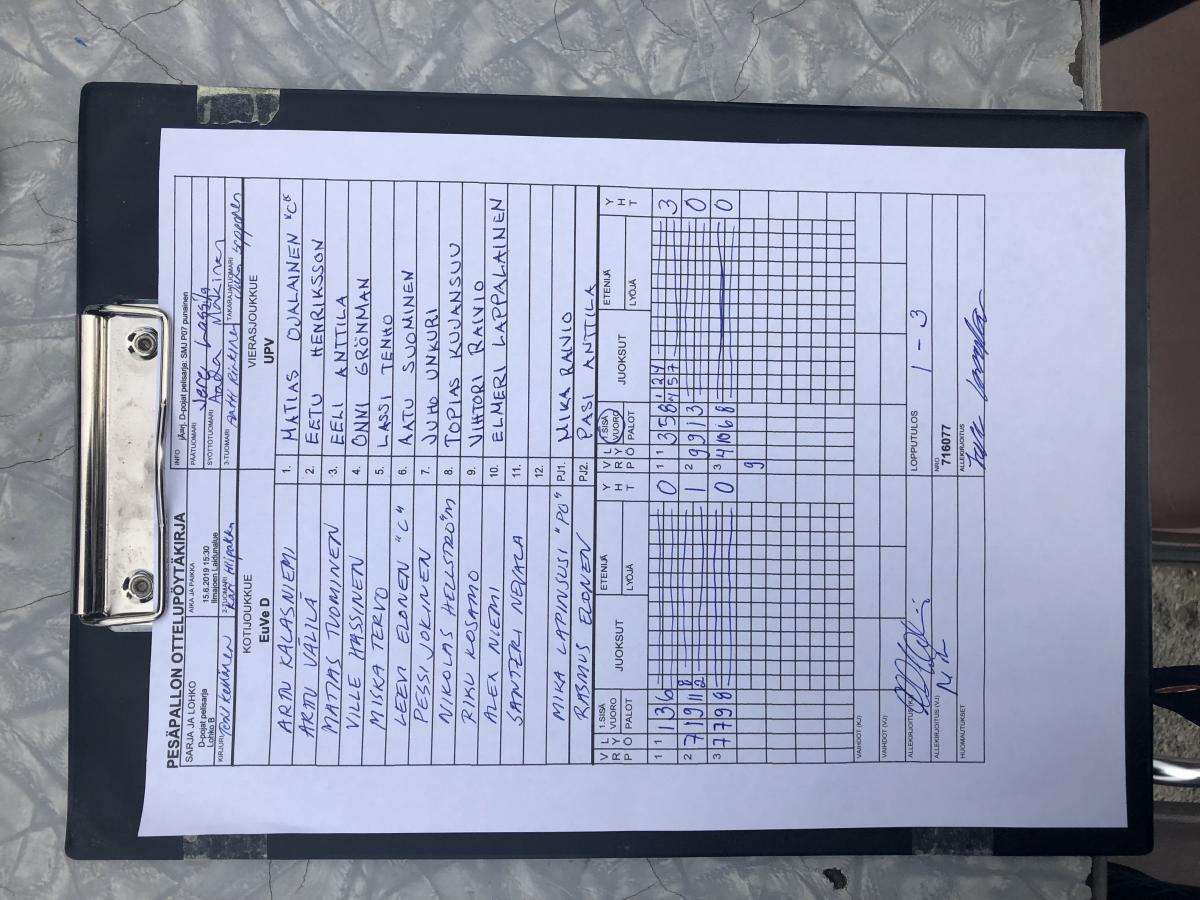 PESÄPALLON OTTELUPÖYTÄKIRJA
SARJA JA LOHKO
D-pojat pelisarja
Lohko B
AIKA JA PAIKKA
15.6.2019 15:30
Ilmajoen Laidunalue
INFO
järj. D-pojat pelisarja: SMJ P07 punainen
PÄÄTUOMARI Jere Lassila
SYÖTTÖTUOMARI Mäkinen
KIRJURI
2-TUOMARI
3-TUOMARI
TAKARAJATUOMARI
KOTIJOUKKUE
EuVe D
VIERASJOUKKUE
UPV
ARTTU KALASNIEMI 1. MATIAS OJALAINEN "C"
ARTTU VÄLILÄ 2. EETU HENRIKSSON
MATIAS TUOMINEN 3. EELI ANTTILA
VILLE HASSINEN 4. ONNI GRÖNMAN
MISKA TERVO 5. LASSI TENHO
LEEVI ELONEN "C" 6. AATU SUOMINEN
PESSI JOKINEN 7. JUHO UNKURI
NIKOLAS HELLSTRÖM 8. TOPIAS KUJANSUU
RIKU KOSAMO 9. VIHTORI RAINIO
ALEX NIEMI 10. ELMERI LAPPALAINEN
SANTERI NEVALA 11.
12.
MIKA LAPINIUSI "PO" PJ1. MIKA RAINIO
RASMUS ELONEN PJ2. PASI ANTTILA
V R P L Y Ö 1.SISÄ VUORO PALOT JUOKSUT ETENIJÄ LYÖJÄ Y H T
V R P L Y Ö 1.SISÄ VUORO PALOT JUOKSUT ETENIJÄ LYÖJÄ Y H T
1 1 1 3 6 0 1 1 3 5 8 3
2 7 1 9 11 1 2 9 9 1 3 0
3 7 7 9 8 0 3 4 10 6 8 0
9
VAIHDOT (KJ)
VAIHDOT (VJ)
ALLEKIRJOITUS (KJ)
LOPPUTULOS 1 - 3
ALLEKIRJOITUS (VJ)
NRO
716077
HUOMAUTUKSET
ALLEKIRJOITUS